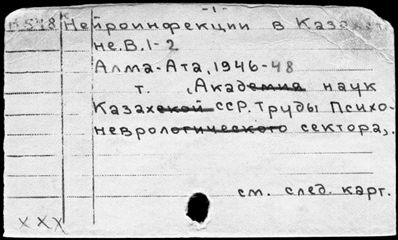 -1-
Нейроинфекции в Казахста
не. В. 1-2
Алма-Ата, 1946-48
т. (Академия наук
Казахской ССР. Труды Психо-
неврологического сектора,.
см. след. карт.
XXX